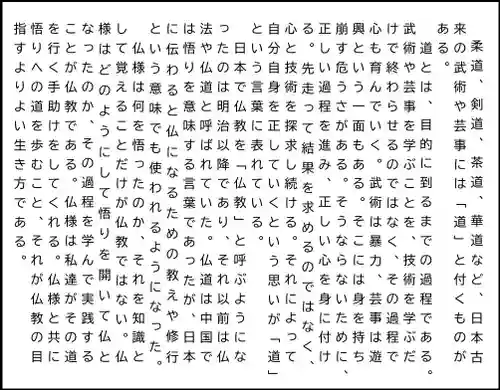 柔道、剣道、茶道、華道など、日本古
来の武術や芸事には「道」と付くものが
ある。
道とは、目的に到るまでの過程である。
武術や芸事を学ぶことを、技術を学ぶだ
けで終わらせるのではなく、その過程で
心も育んでいく。武術は暴力、芸事は遊
興という一面もある。そこには身を持ち
崩す危うさがある。そうならないために、
正しい過程を進み、正しい心を身に付け
る。先走って結果を求めるのではなく、
心と技術を探求し続ける。それによって
自分自身を正していくという思いが「道」
という言葉に表れている。
日本で仏教を「仏教」と呼ぶようにな
ったのは明治以降であり、それ以前は仏
法や仏道と呼ばれていた。仏道は中国で
は悟りを意味する言葉であったが、日本
に伝わると仏になるための教えや修行
という意味でも使われるようになった。
仏様は何を悟ったのか、それを知識と
して覚えることだけが仏教ではない。仏
様はどのようにして悟りを開いて仏と
なったのか、その過程を学んで実践する
ことが仏教である。仏様は私達がその道
を行く手助けをしてくれる。仏様と共に
悟りへの道を歩むこと、それが仏教の目
指すよりよい生き方である。